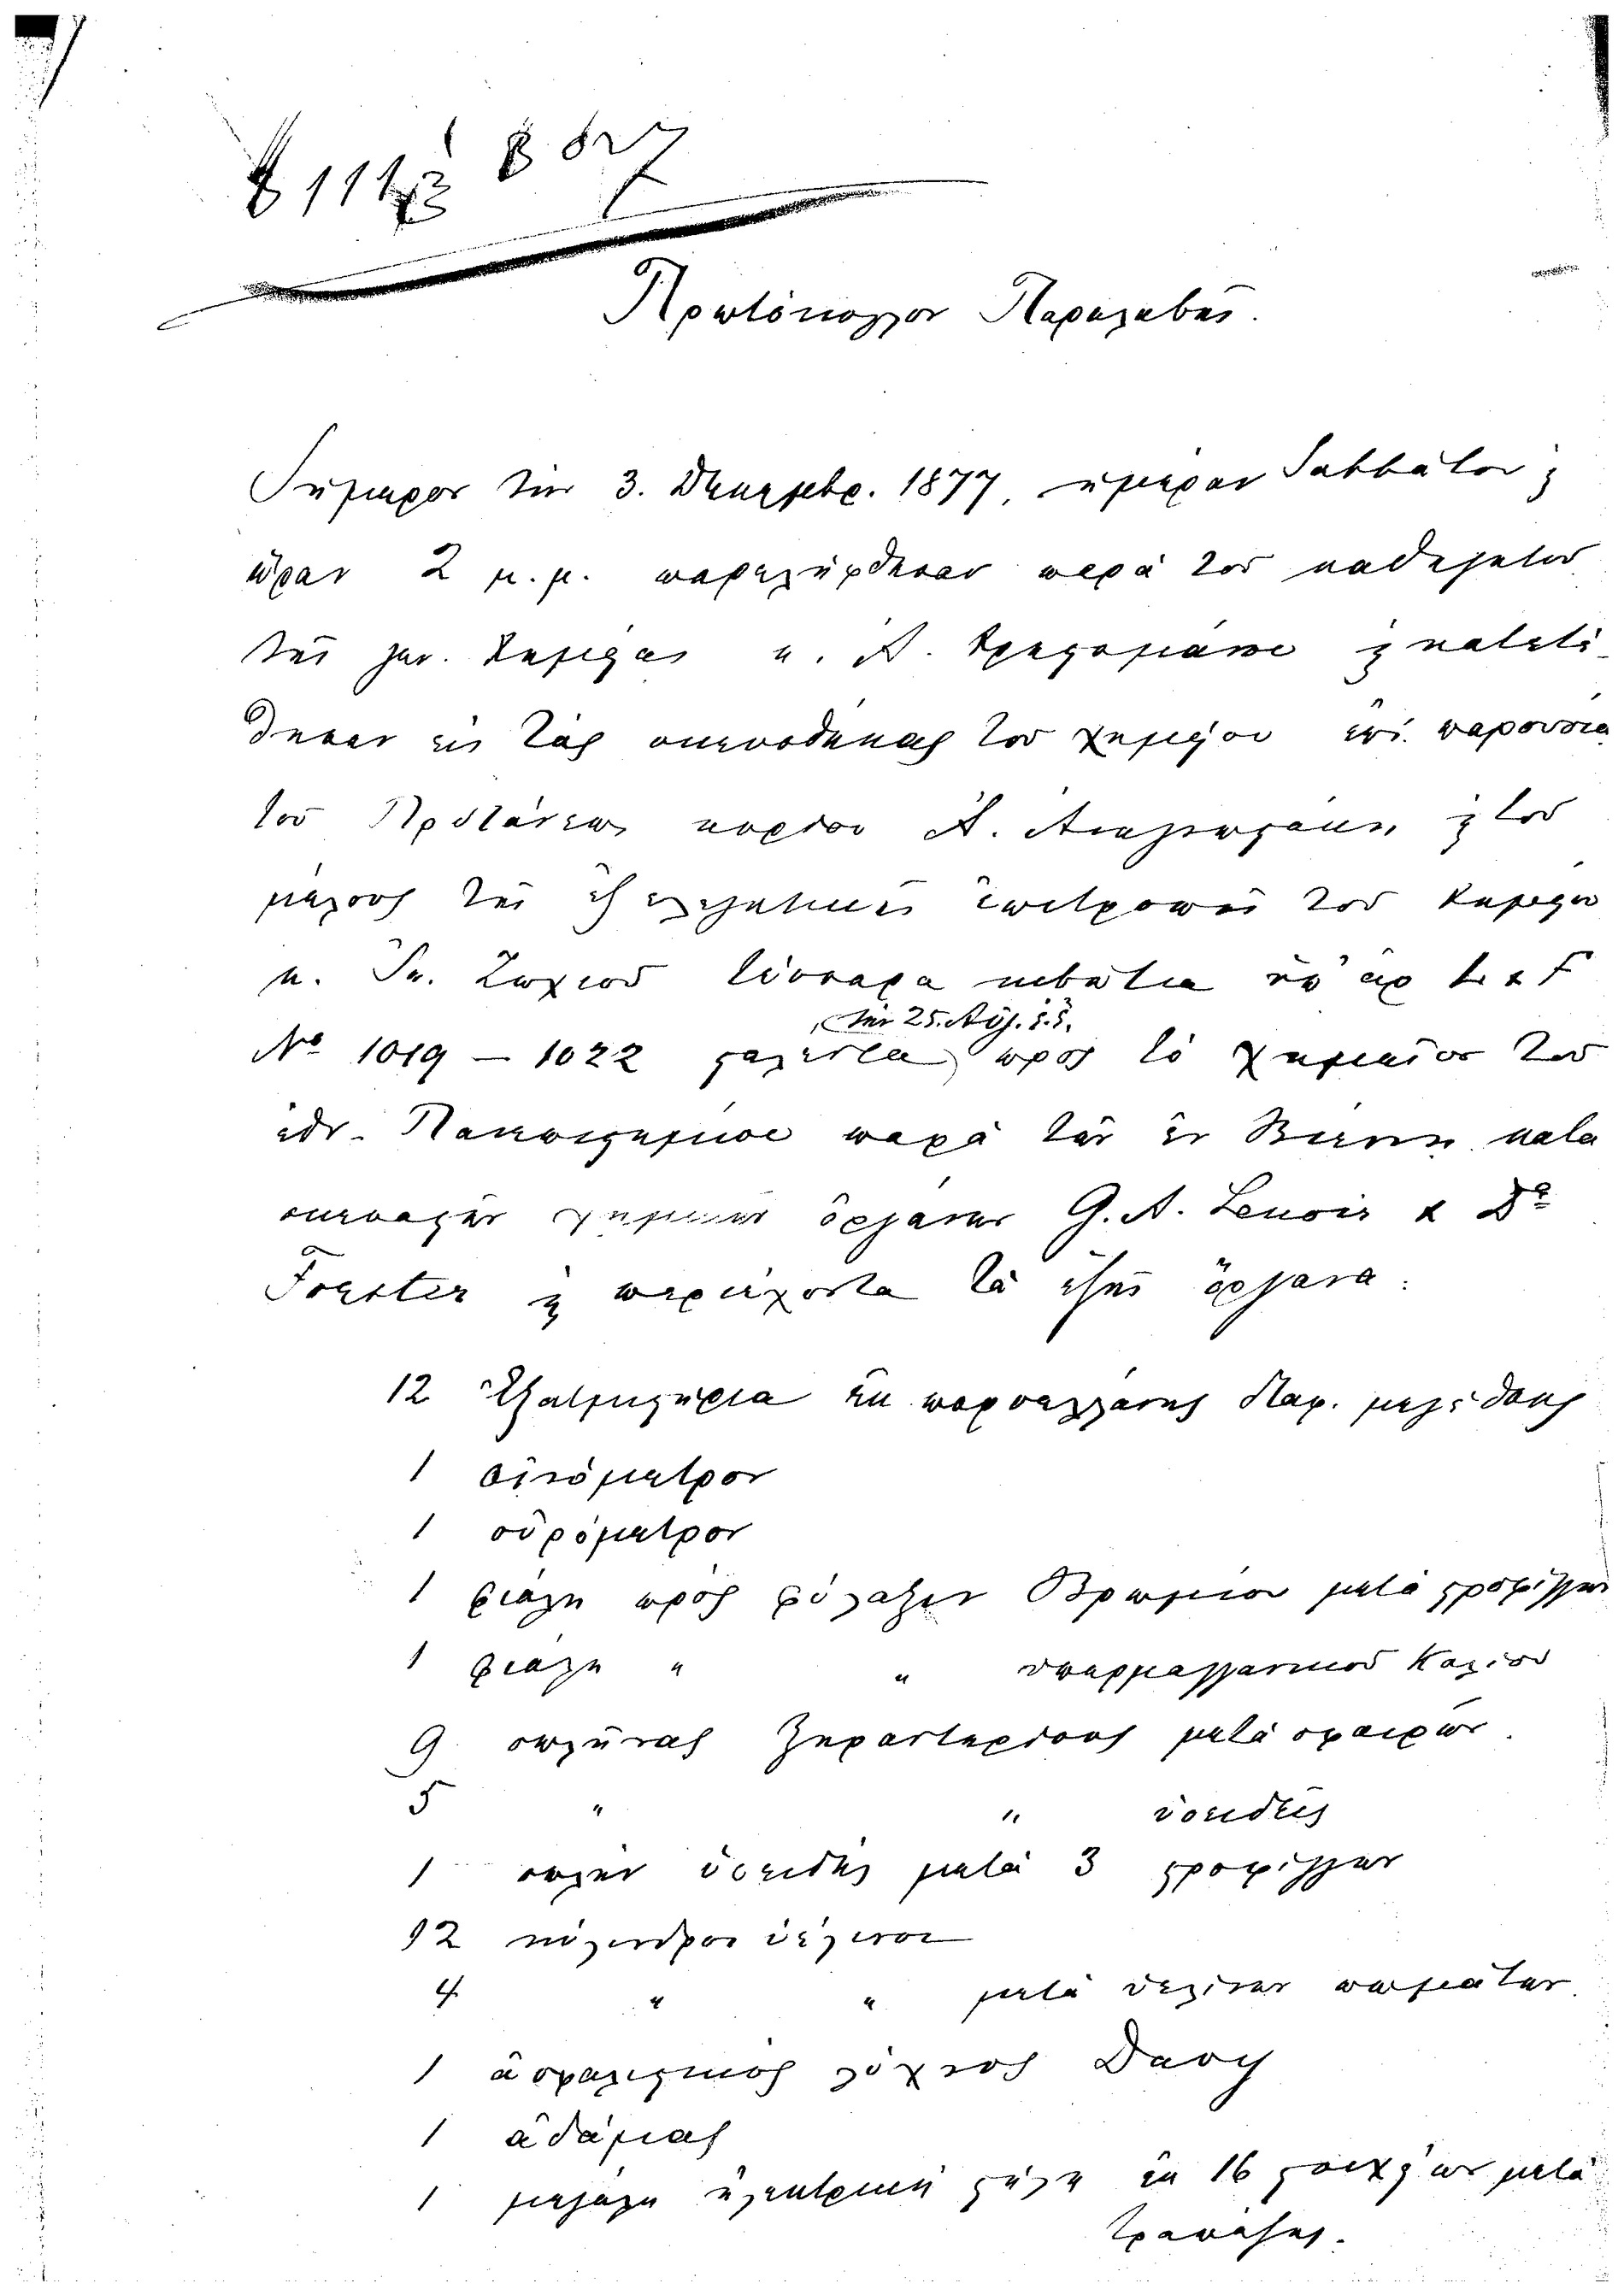 Πρωτόκολλον Παραλαβῆς.
Σήμερον τὴν 3. Δεκεμβρ. 1877, ἡμέραν Σαββάτον καὶ
ὥραν 2 μ.μ. παρελήφθησαν παρὰ τοῦ καθηγητοῦ
τῆς γεν. Χημείας κ. Α. Χρηστομάνου καὶ κατετέ-
θησαν εἰς τὰς σκευοθήκας τοῦ χημείου ἐπὶ παρουσίᾳ
τοῦ Πρυτάνεως κυρίου Α. καὶ τοῦ
μέλους τῆς ἐξελεγκτικῆς ἐπιτροπῆς τοῦ Χημείου
κ. τέσσαρα κιβώτια ὑπ' ἀρ L & F
Nº 1019 – 1022 σταλέντα, τὴν 25. Αὐγ. ἐ.ἔ. πρὸς τὸ χημεῖον τοῦ
ἐθν. Πανεπιστημίου παρὰ τῶν ἐν Βιέννῃ κατα
σκευαστῶν χημικῶν ὀργάνων G. A. Lenoir & Dº
Forster καὶ περιέχοντα τὰ ἑξῆς ὄργανα:
12 Ἐξατμιστήρια ἐκ πορσελλάνης διαφ. μεγέθους
1 οἰνόμετρον
1 οὐρόμετρον
1 φιάλη πρὸς φύλαξιν Βρωμίου μετὰ στροφίγγων
1 φιάλη " " ὑπερμαγγανικοῦ Καλίου
9 σωλῆνας ξηραντηρίους μετὰ σφαιρῶν.
5 " " ὑοειδεῖς
1 σωλὴν ὑοειδὴς μετὰ 3 στροφίγγων
12 κύλινδροι ὑέλινοι
4 " " μετὰ ὑελίνων πωμάτων
1 ἀσφαλιστικὸς λύχνος Davy
1 ἀδάμας
1 μεγάλη ἠλεκτρικὴ στήλη ἐκ 16 στοιχείων μετὰ
τραπέζης.